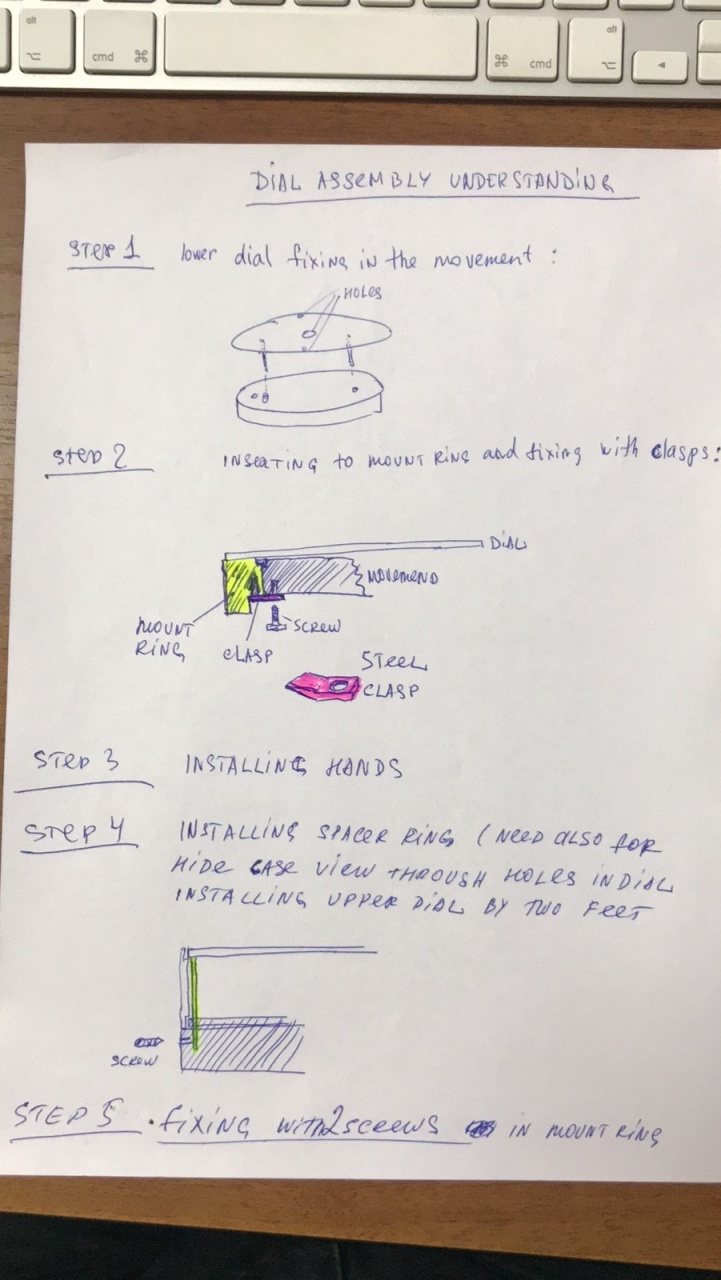 alt
alt
cmd ⌘
⌘ cmd
DIAL ASSEMBLY UNDERSTANDING
STEP 1 lower dial fixing in the movement :
HOLES
Step 2 INSERTING to MOUNT RING and fixing with clasps:
DIAL
MOVEMEND
MOUNT
RING
CLASP
SCREW
STEEL
CLASP
STEP 3 INSTALLING HANDS
STEP 4 INSTALLING SPACER RING (NEED ALSO FOR
HIDE CASE VIEW THROUGH HOLES IN DIAL
INSTALLING UPPER DIAL BY TWO FEET
SCREW
STEP 5 . fixing with 2 screws IN MOUNT RING